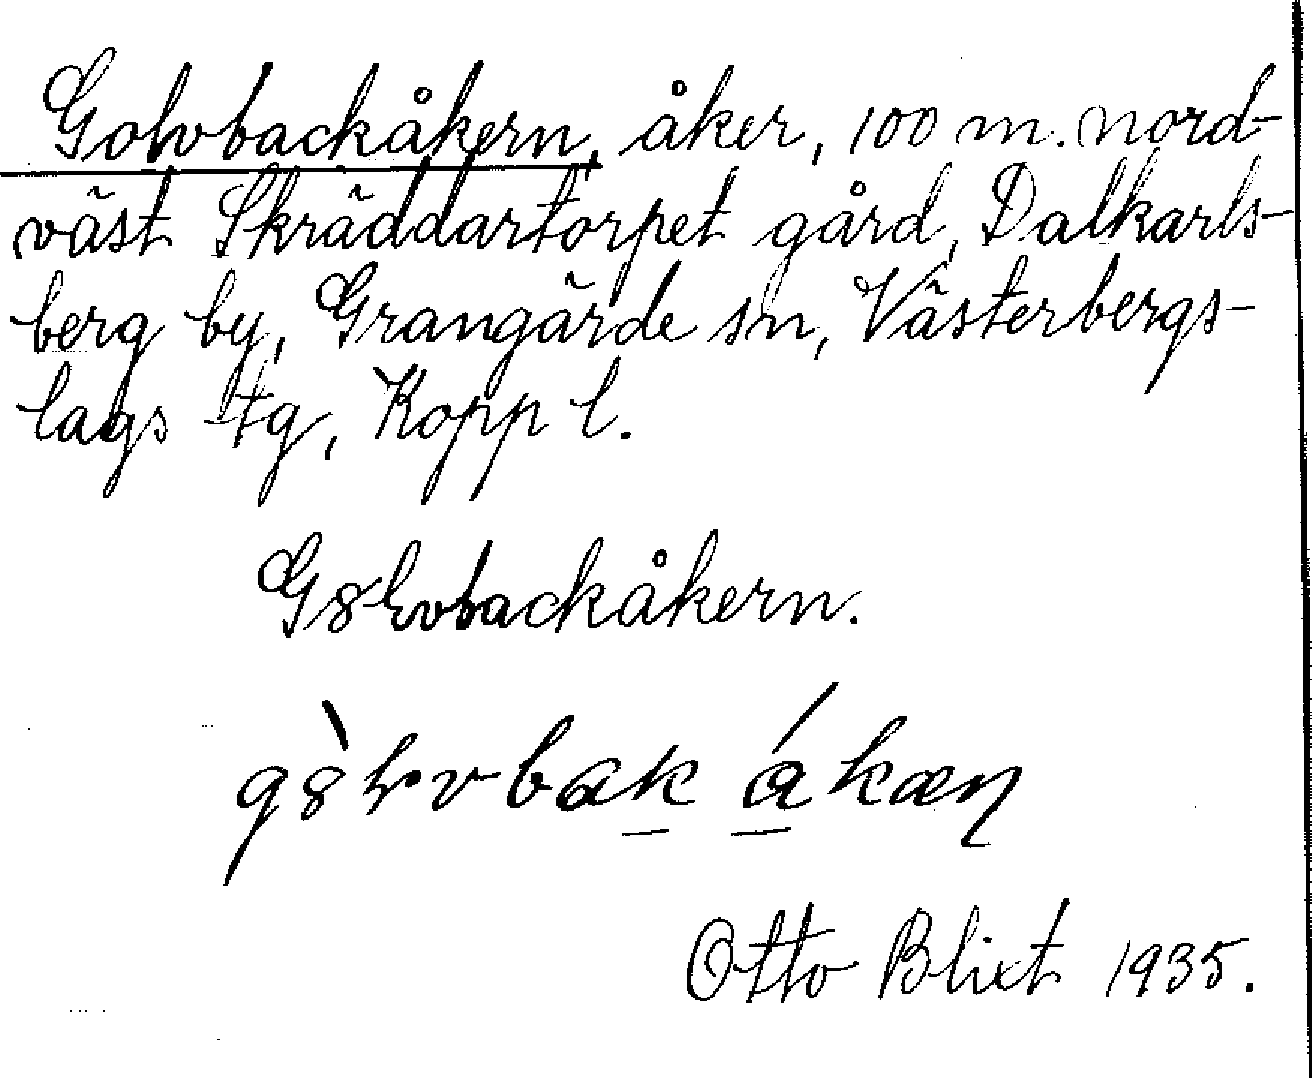 Golvbackåkern, åker, 100 m. nord-
väst Skräddartorpet gård, Dalkarls-
berg by, Grangärde sn, Västerbergs-
lags tg, Kopp l.
G8lvbackåkern.
Otto Blixt 1935.